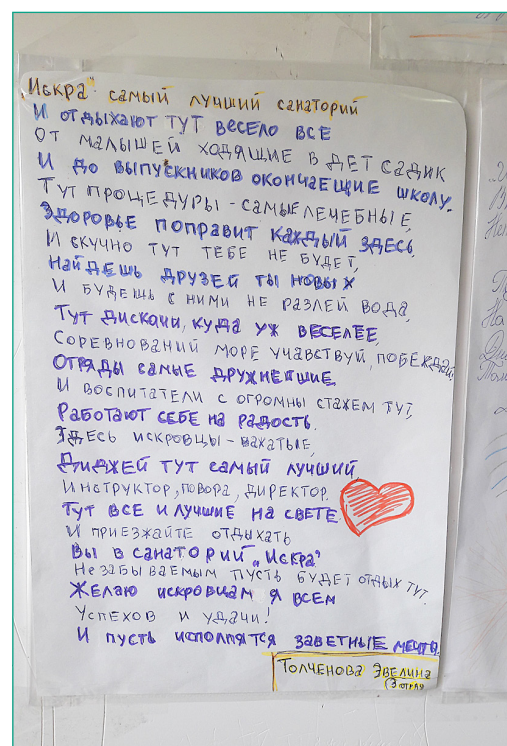 Искра" самый лучший санаторий
И отдыхают тут весело все
От малышей ходящие в дет садик
И до выпускников окончаещие школу.
Тут процедуры - самые лечебные,
Здоровье поправит каждый здесь.
И скучно тут тебе не будет,
Найдешь друзей ты новых
И будешь с ними не разлей вода,
Тут дискачи, куда уж веселее,
Соревнований море учавствуй, побеждай!
Отряды самые дружнейшие.
И воспитатели с огромны стажем тут,
Работают себе на радость.
Здесь искровцы - вахатые,
Диджей тут самый лучший,
Инструктор, повора, директор.
Тут все и лучшие на свете.
И приезжайте отдыхать
Вы в санаторий „Искра"
Незабываемым пусть будет отдых тут.
Желаю искровцам я всем
Успехов и удачи!
И пусть исполнятся заветные мечты.
Толченова Эвелина
3 отряд